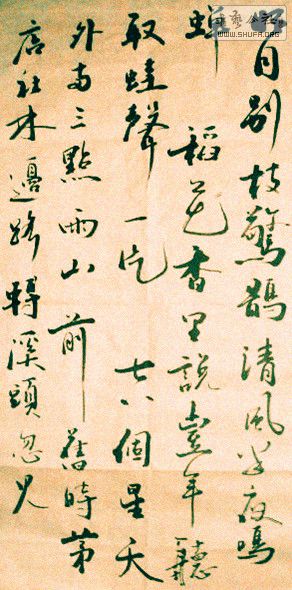 明月別枝驚鵲清風半夜鳴
蟬 稻花香里說豐年聽
取蛙聲一片 七八個星天
外兩三點雨山前舊時茅
店社林邊路轉溪頭忽見
WWW.SHUFA.ORG